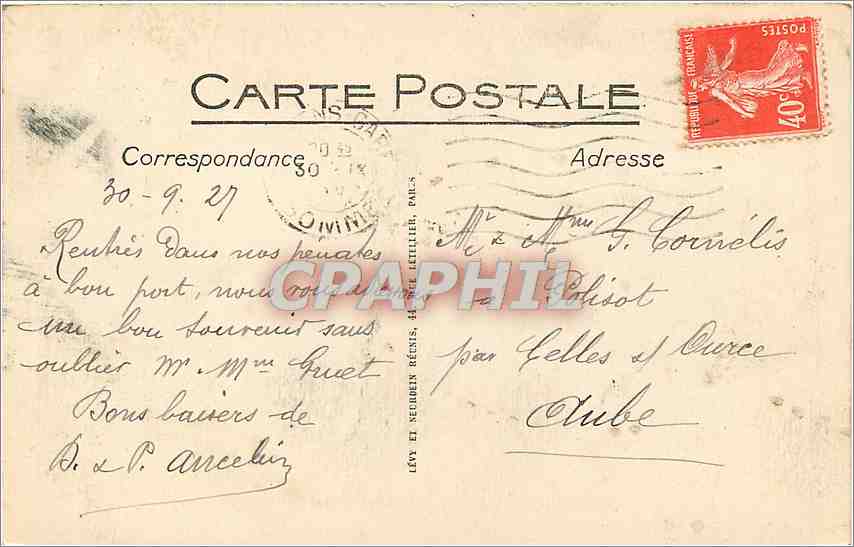 CARTE POSTALE
RÉPUBLIQUE FRANÇAISE
POSTES
40c
Correspondance
Adresse
30
SOMME
30-9-27
Rentrés dans nos penates
à bon port, nous vous adressons
un bon souvenir sans
oublier Mr Mme Gruet
Bons baisers de
D. & P. Ancelin
LÉVY ET NEURDEIN RÉUNIS, 44 RUE LETELLIER, PARIS
Mr & Mme G. Cornélis
à Polisot
par Celles s/ Ource
Aube
CPAPHIL